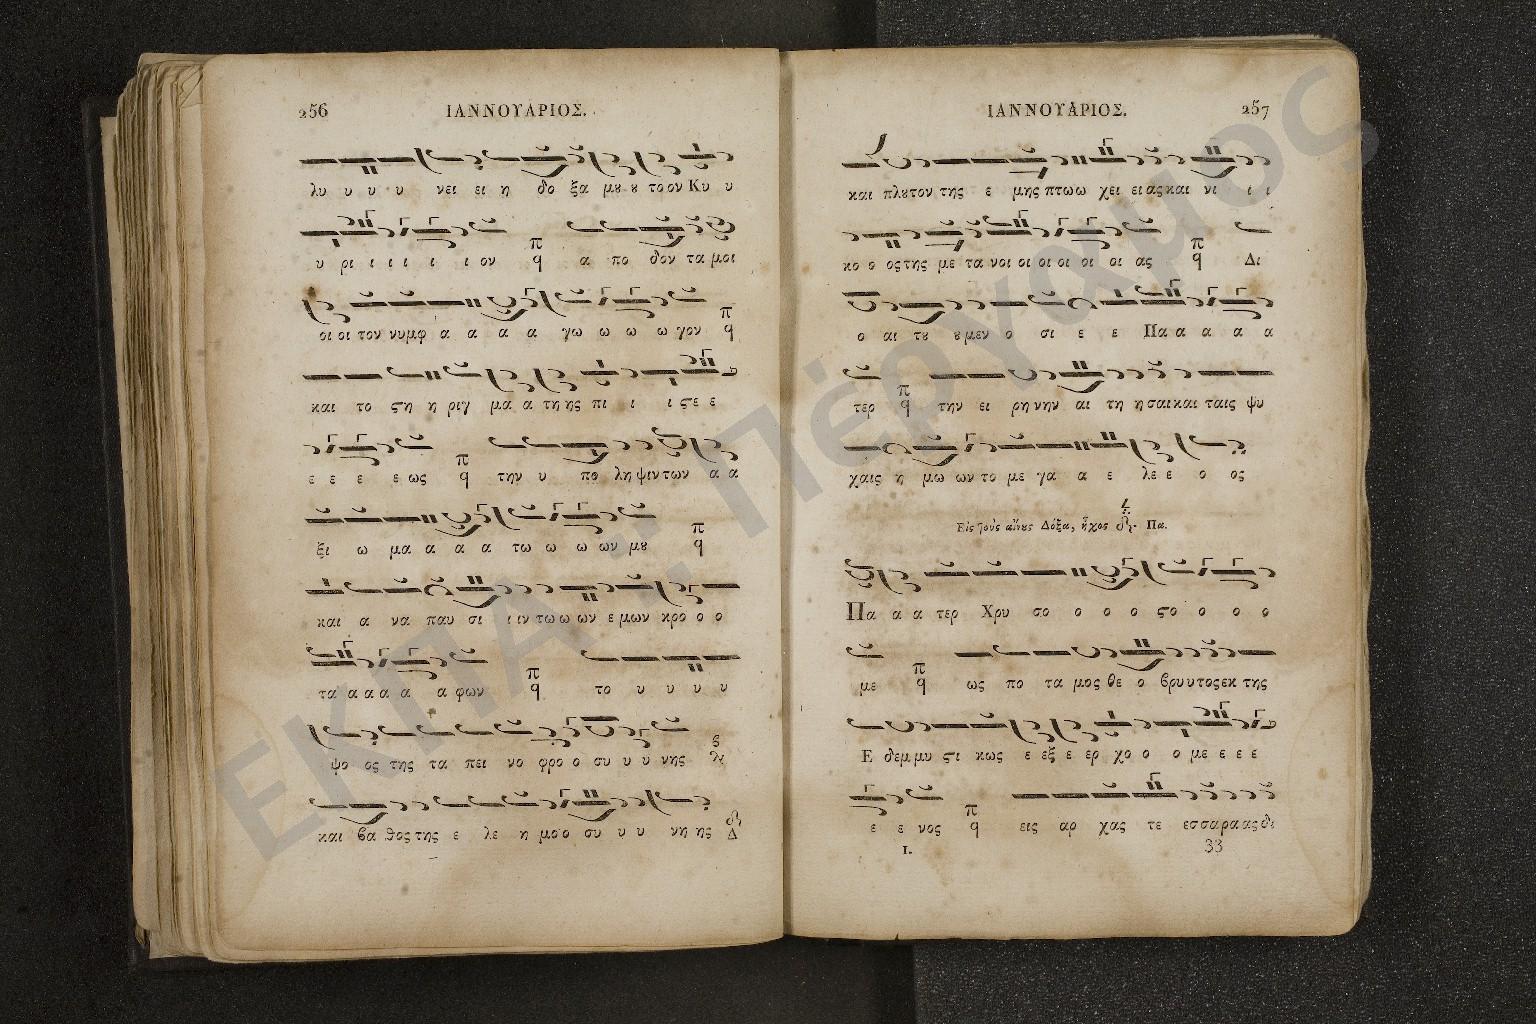 256 ΙΑΝΝΟΥΑΡΙΟΣ.
λυ υ υ υ νει ει η δο ξα μȣ ȣ το ον Κυ υ
υ ρι ι ι ι ι ι ον π q α πο δον τα μοι
οι οι τον νυμφ α α α α γω ω ω ω γον π q
και το ϛη η ριγ μα α τη ης πι ι ι ϛε ε
ε ε ε ε ως π q την υ πο λη ψιν των α α
ξι ω μα α α α τω ω ω ων μȣ π q
και α να παυ σι ι ιν τω ω ων ε μων κρο ο ο
τα α α α α α φων π q το υ υ υ υ
ψο ος της τα πει νο φρο ο συ υ υ νης
και βα θος της ε λε η μο ο συ υ υ νη ης Δ
ΙΑΝΝΟΥΑΡΙΟΣ. 257
και πλȣτον της ε μης πτω ω χει ει ας και νι ι ι
κο ο ος της με τα νοι οι οι οι οι οι ας π q Δι
ο αι τȣ ȣ μεν ο σι ε ε Πα α α α α
τερ π q την ει ρη νην αι τη η σαι και ταις ψυ
χαις η μω ων το με γα α ε λε ε ο ος
Εἰς τοὺς αἴνȣς Δόξα, ἦχος Πα.
Πα α α τερ Χρυ σο ο ο ο ϛο ο ο ο
με π q ως πο τα μος θε ο βρυ υτος εκ της
Ε δεμ μυ ϛι κως ε εξ ε ερ χο ο ο με ε ε ε
ε ε νος π q εις αρ χας τε εσ σα ρα ας δι
I. 33
ΕΚΠΑ: Πέργαμος